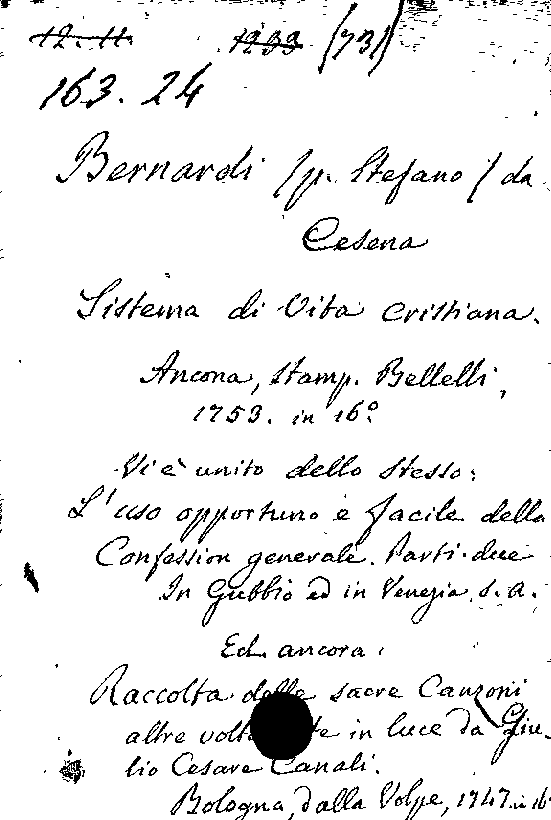 12. 11. 1233 (731)
163. 24
Bernardi (p. Stefano) da
Cesena
Sistema di Vita Cristiana.
Ancona, Stamp. Bellelli,
1753. in 16º
Vi è unito dello stesso:
L'uso opportuno e facile della
Confession generale. Parti due
In Gubbio ed in Venezia, s. a.
Ed ancora:
Raccolta delle sacre Canzoni
altre volte in luce da Giu-
lio Cesare Canali.
Bologna, dalla Volpe, 1747. in 16